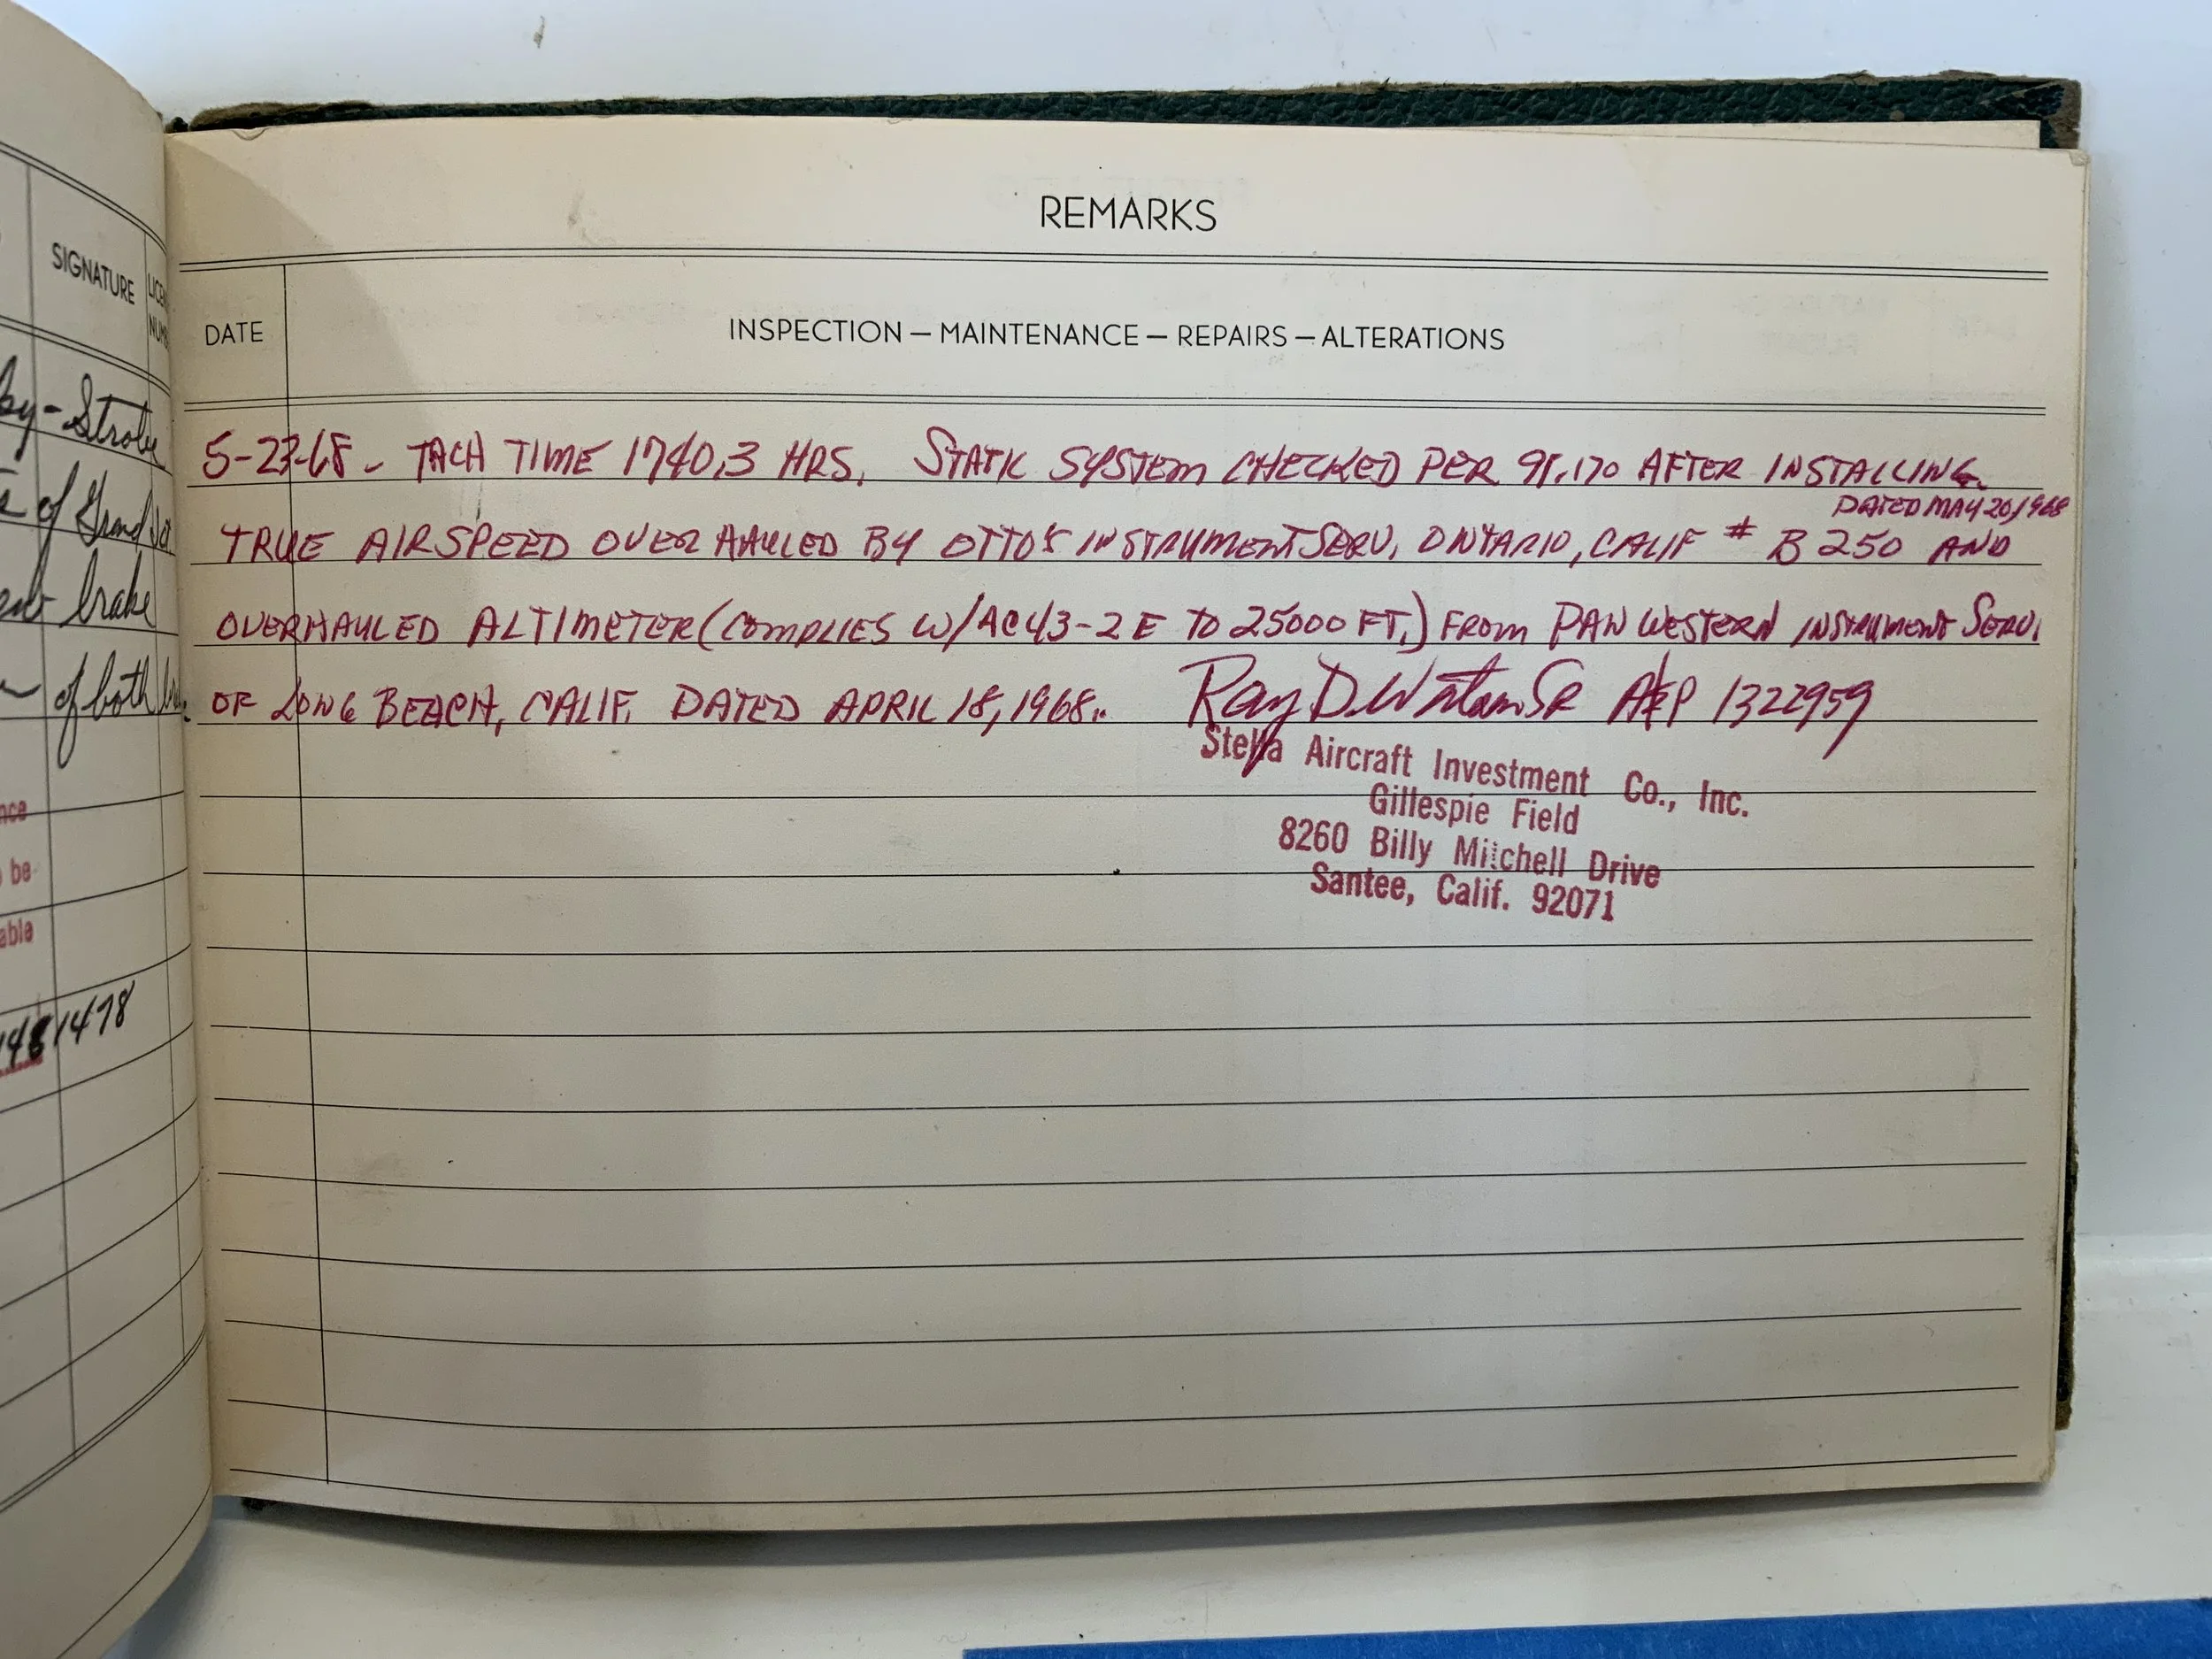 SIGNATURE
by-Strobe
of
brake
of both
nce
be
able
1478
REMARKS
DATE
INSPECTION — MAINTENANCE — REPAIRS — ALTERATIONS
5-23-68 - TACH TIME 1740.3 HRS. STATIC SYSTEM CHECKED PER 91.170 AFTER INSTALLING
DATED MAY 20, 1968
TRUE AIRSPEED OVERHAULED BY OTTO'S INSTRUMENT SERV. ONTARIO, CALIF # B 250 AND
OVERHAULED ALTIMETER (COMPLIES W/AC43-2 E TO 25000 FT.) FROM PAN WESTERN INSTRUMENT SERV.
OF LONG BEACH, CALIF. DATED APRIL 18, 1968.. Ray D. Sr A&P 1322959
Stella Aircraft Investment Co., Inc.
Gillespie Field
8260 Billy Mitchell Drive
Santee, Calif. 92071